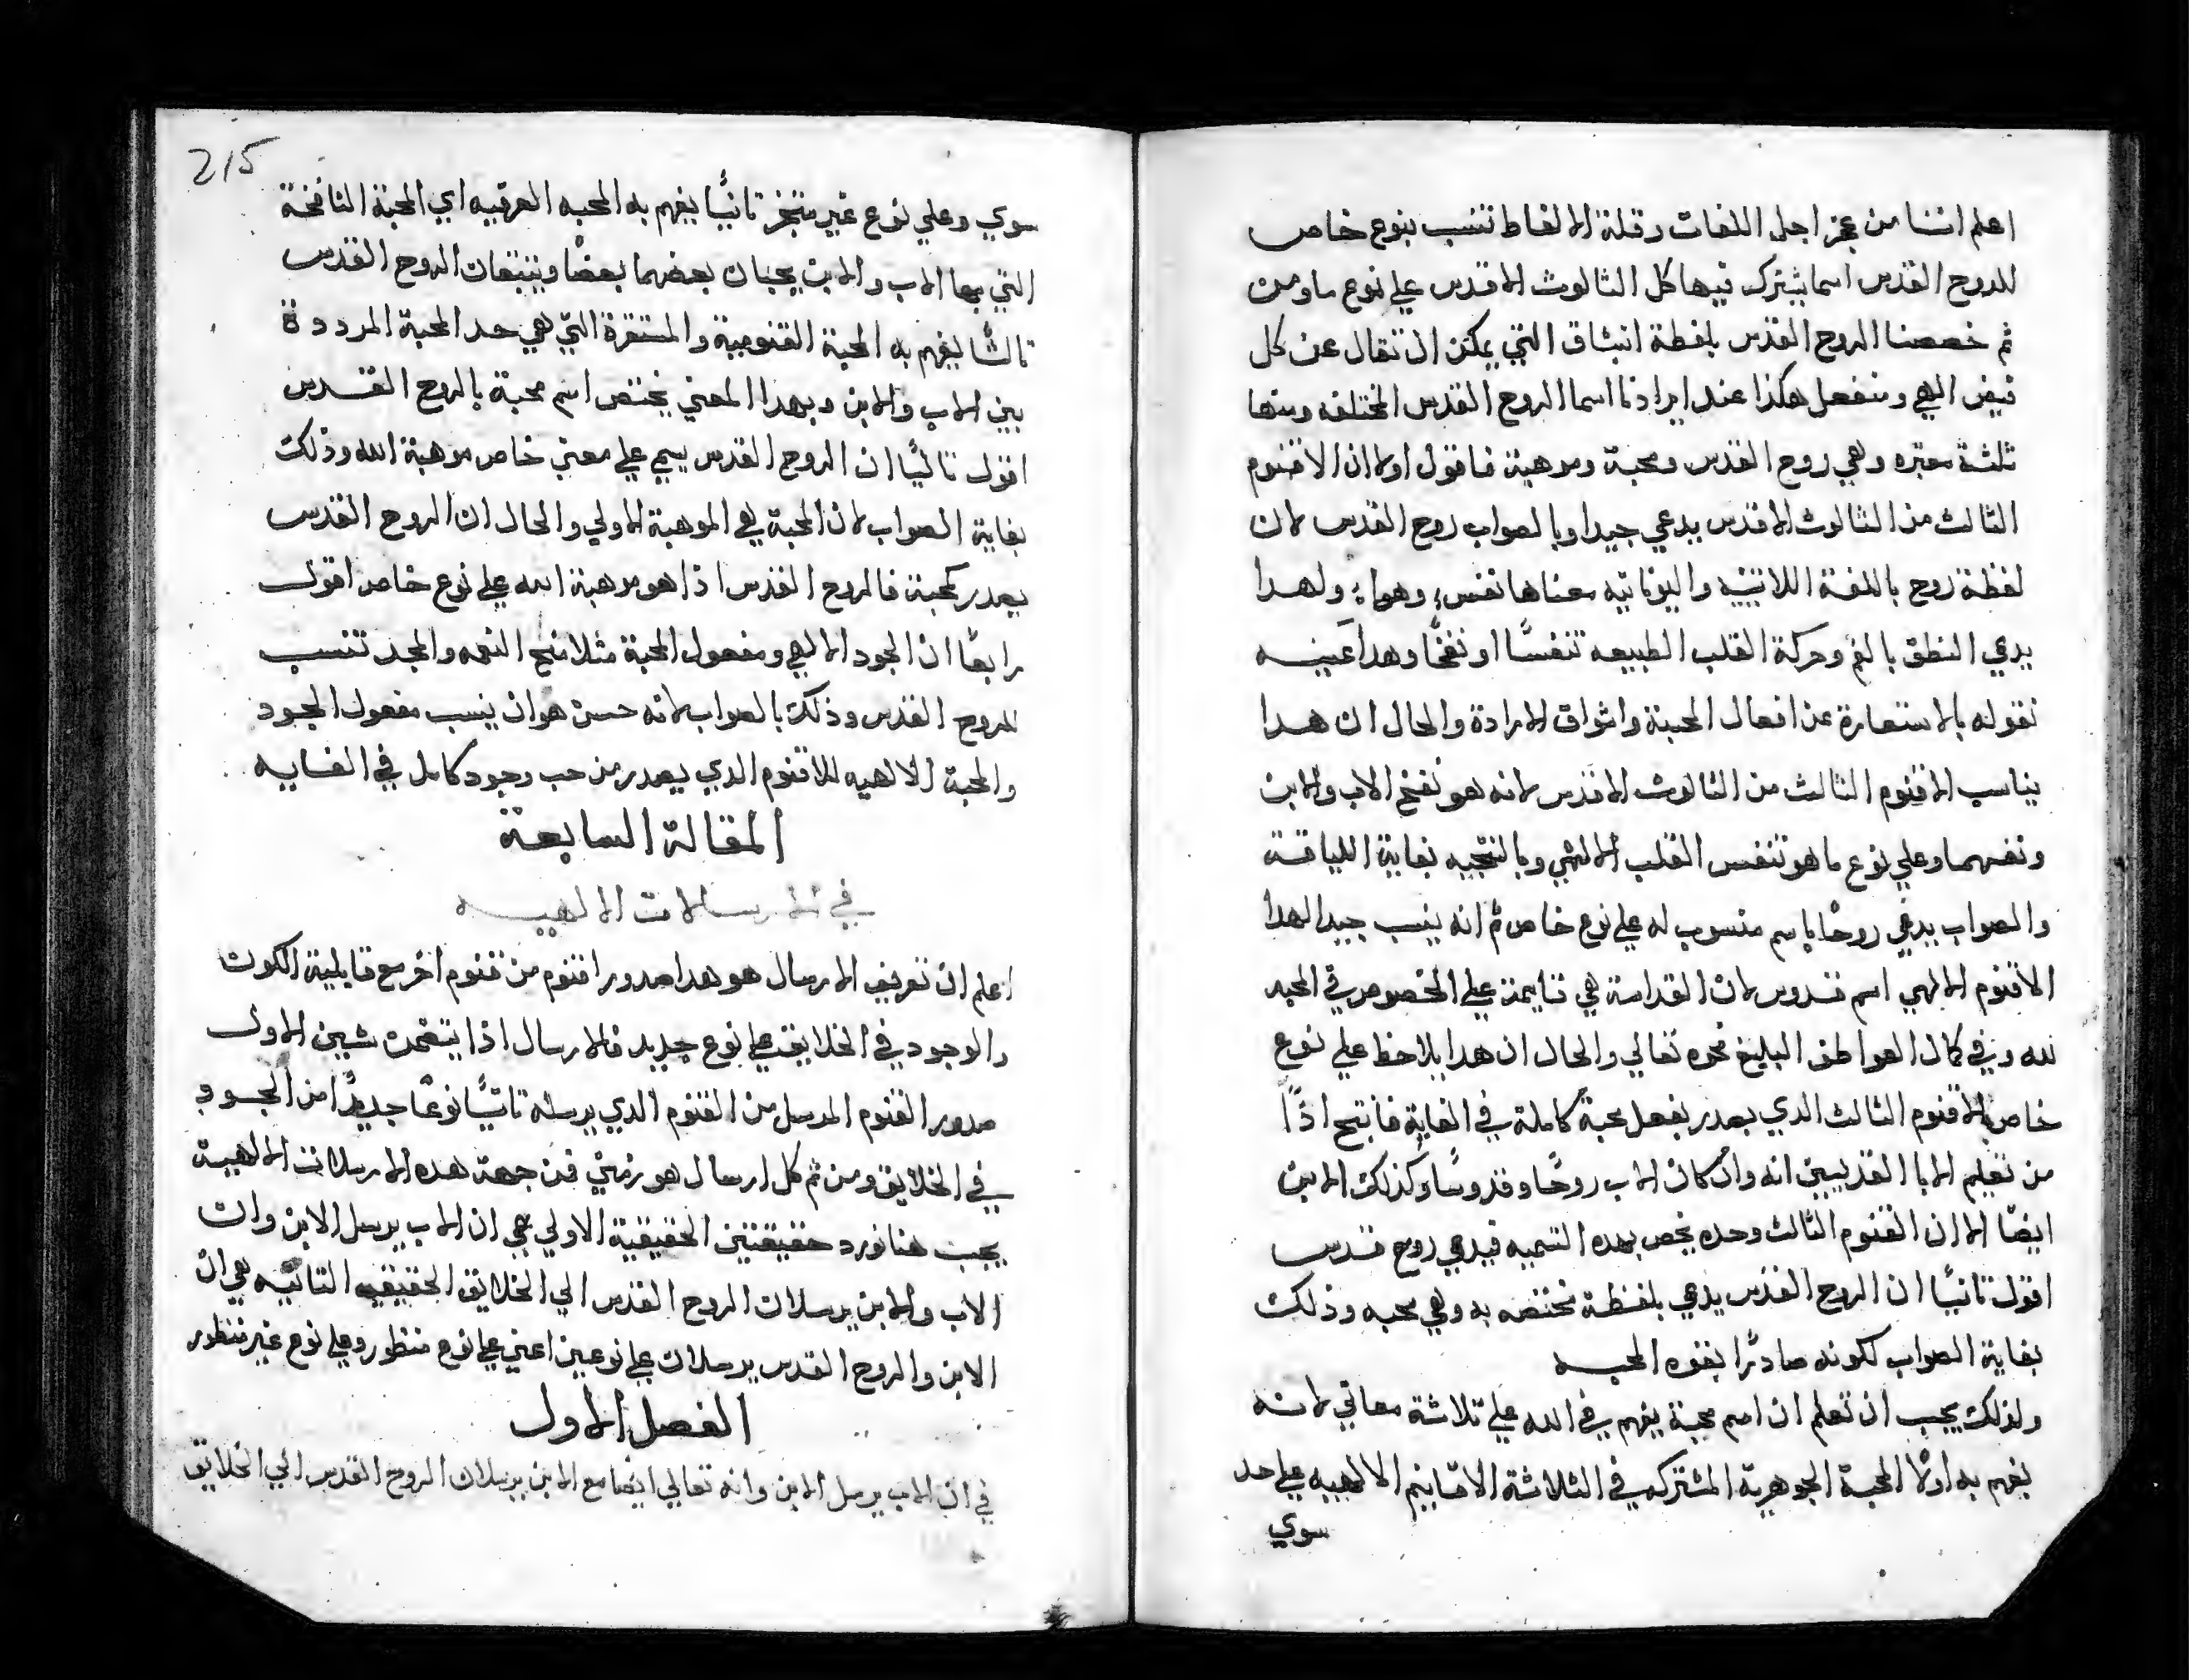 اعلم اننا من عجز اجل اللغات وقلة الالفاظ تنسب بنوع خاص
للروح القدس اسما يشترك فيها كل الثالوث الاقدس علي نوع ما ومن
ثم خصصنا الروح القدس بلفظة انبثاق التي يمكن ان تقال عن كل
فيض الهي وسنفعل هكذا عند ايرادنا اسما الروح القدس المختلفه ومنها
ثلثة معتبره وهي روح القدس ومحبة وموهبة فاقول اولا ان الاقنوم
الثالث من الثالوث الاقدس يدعي جيدا وبالصواب روح القدس لان
لفظة روح باللغة اللاتينيه واليونانيه معناها نفس وهوا ولهدا
يدعي النطق بالفم وحركة القلب الطبيعه تنفسًا او نفخًا وهدا عينه
نقوله بالاستعارة عن افعال المحبة واشواق الارادة والحال ان هدا
يناسب الاقنوم الثالث من الثالوث الاقدس لانه هو نفخ الاب والابن
ونفسهما وعلي نوع ما هو تنفس القلب الالهي وبالنتيجه بغاية اللياقة
والصواب يدعي روحًا باسم منسوب له علي نوع خاص ثم انه ينسب جيدا لهدا
الاقنوم الالهي اسم قدوس لان القداسة هي قايمة علي الخصوص في المحبه
لله وفي كمال العواطف البليغ نحوه تعالي والحال ان هدا يلاحظ علي نوع
خاص الاقنوم الثالث الدي يصدر بفعل محبة كاملة في الغاية فانتج اذًا
من تعليم الابا القديسين انه وان كان الاب روحًا وقدوسًا وكذلك الابن
ايضًا الا ان القنوم الثالث وحده يخص بهده التسميه فيدعي روح قدس
اقول ثانيًا ان الروح القدس يدعي بلفظة مختصه به وهي محبه وذلك
بغاية الصواب لكونه صادرًا بقوه المحبه
ولذلك يجب ان تعلم ان اسم محبة يفهم في الله علي ثلاثة معاني لانه
يفهم به اولًا المحبة الجوهرية المشتركه في الثلاثة الاقانيم الالهيه علي حد
سوي
215
سوي وعلي نوع غير متجز ثانيًا يفهم به المحبه العرقيه اي المحبة النافخة
التي بها الاب والابن يحبان بعضهما بعضًا وينبثقان الروح القدس
ثالثًا يفهم به المحبة القنومية والمستقرة التي هي حد المحبة المرددة
بين الاب والابن وبهدا المعني يختص اسم محبة بالروح القدس
اقول ثالثًا ان الروح القدس يسمي علي معني خاص موهبة الله وذلك
بغاية الصواب لان المحبة هي الموهبة الاولي والحال ان الروح القدس
يصدر كمحبة فالروح القدس اذا هو موهبة الله علي نوع خاص اقول
رابعًا ان الجود الالهي ومفعول المحبة مثلا منح النعمه والمجد تنسب
للروح القدس وذلك بالصواب لانه حسن هو ان ينسب مفعول الجود
والمحبة الالهيه للاقنوم الدي يصدر من حب وجود كامل في الغايه
المقالة السابعة
في الارسالات الالهيه
اعلم ان تعريف الارسال هو هدا صدور اقنوم من قنوم اخر مع قابلية الكون
والوجود في الخلايق علي نوع جديد فالارسال اذا يتضمن شيين الاول
صدور القنوم المرسل من القنوم الدي يرسله ثانيًا نوعًا جديدًا من الوجود
في الخلايق ومن ثم كل ارسال هو زمني فمن جهة هده الارسالات الالهية
يجب هنا نورد حقيقتين الحقيقية الاولي هي ان الاب يرسل الابن وان
الاب والابن يرسلان الروح القدس الي الخلايق الحقيقيه الثانيه هي ان
الابن والروح القدس يرسلان علي نوعين اعني علي نوع منظور وعلي نوع غير منظور
الفصل الاول
في ان الاب يرسل الابن وانه تعالي ايضا مع الابن يرسلان الروح القدس الي الخلايق